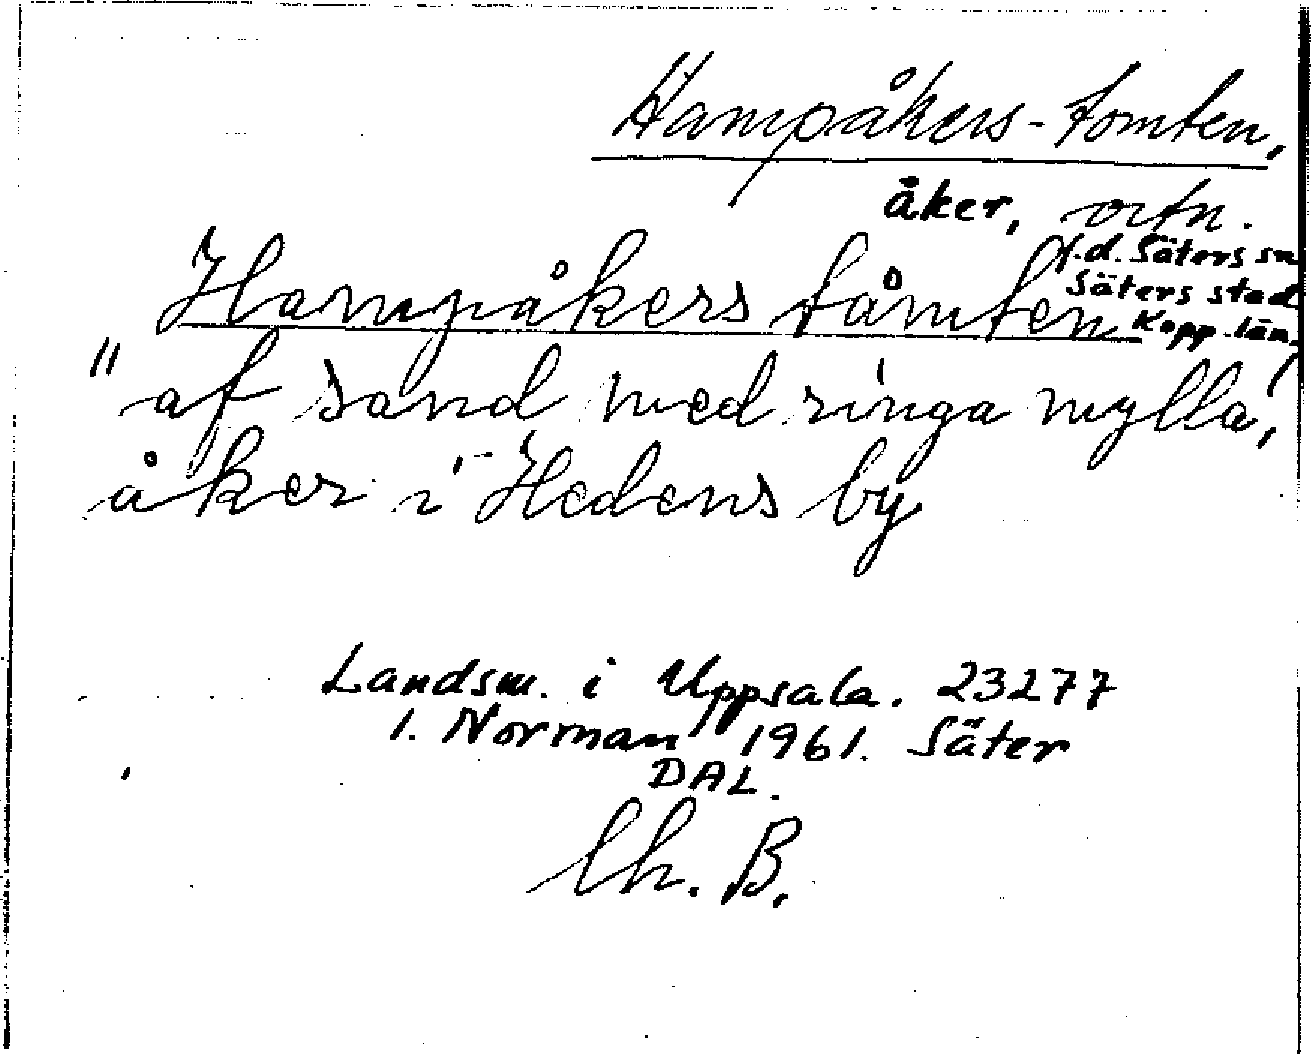 Hampåkers-tomten,
åker, ortn.
f.d. Säters sn
Säters stad
Kopp. län.
Hampåkers tåmten
" af sand med ringa mylla,"
åker i Hedens by
Landsm. i Uppsala. 23277
I. Norman 1961. Säter
DAL.
Ch. B.